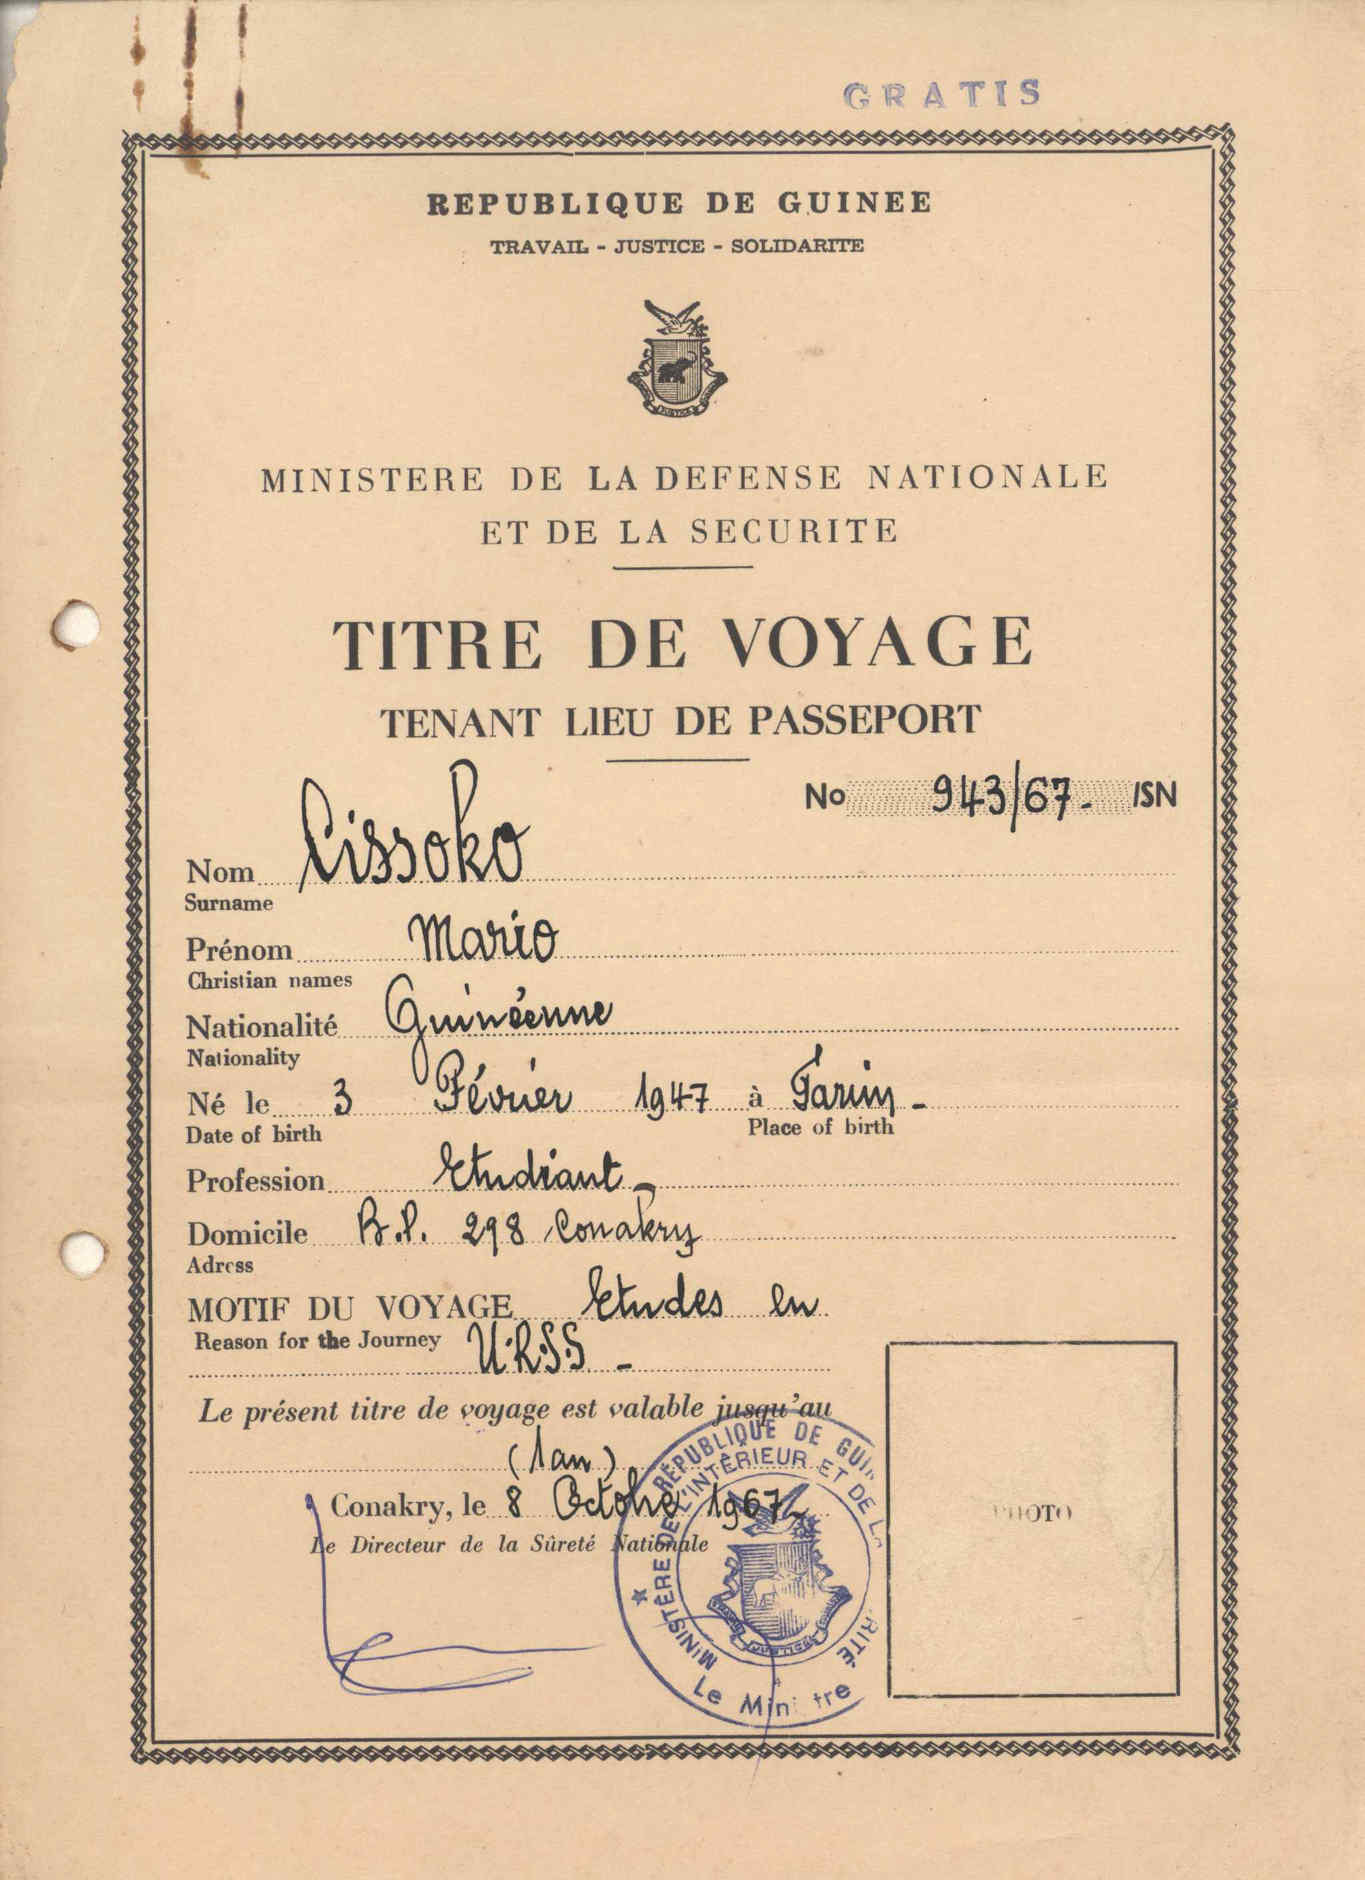 GRATIS
REPUBLIQUE DE GUINEE
TRAVAIL - JUSTICE - SOLIDARITE
MINISTERE DE LA DEFENSE NATIONALE
ET DE LA SECURITE
TITRE DE VOYAGE
TENANT LIEU DE PASSEPORT
No 943/67- /SN
Nom Cissoko
Surname
Prénom Mario
Christian names
Nationalité Guinéenne
Nationality
Né le 3 Février 1947 à Farim -
Date of birth Place of birth
Profession Etudiant -
Domicile B.P. 298 Conakry
Adress
MOTIF DU VOYAGE Etudes en
Reason for the Journey U.R.S.S. -
Le présent titre de voyage est valable jusqu'au
(1 an)
Conakry, le 8 Octobre 1967-
Le Directeur de la Sûreté Nationale
RÉPUBLIQUE DE GUIN
MINISTÈRE DE L'INTÉRIEUR ET DE L
RITÉ
Le Mini tre
PHOTO